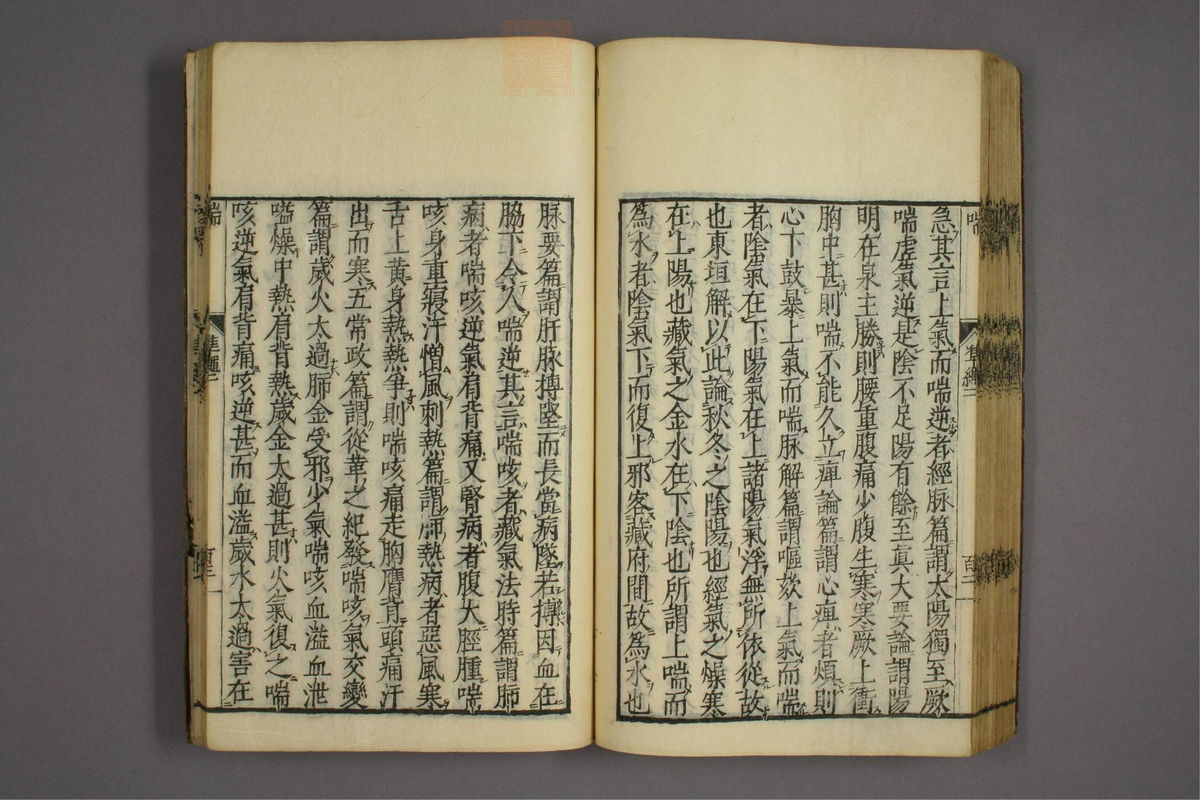 喘
急其言上氣而喘逆者經脉篇謂太陽獨至厥
喘虛氣逆是陰不足陽有餘至真大要論謂陽
明在泉主勝則腰重腹痛少腹生寒寒厥上衝
胸中甚則喘不能久立痺論篇謂心痺者煩則
心下鼓暴上氣而喘脉解篇謂嘔欬上氣而喘
者陰氣在下陽氣在上諸陽氣浮無所依從故
也東垣解以此論秋冬之陰陽也經氣之燥寒
在上陽也藏氣之金水在下陰也所謂上喘而
爲水者陰氣下而復上邪客藏府間故爲水也
脉要篇謂肝脉搏堅而長當病墜若搏因血在
脇下令人喘逆其言喘咳者藏氣法時篇謂肺
病者喘咳逆氣肩背痛又腎病者腹大脛腫喘
咳身重寢汗憎風刺熱篇謂肺熱病者惡風寒
舌上黃身熱熱爭則喘咳痛走胸膺背頭痛汗
出而寒五常政篇謂從革之紀發喘咳氣交變
篇謂歲火太過肺金受邪少氣喘咳血溢血泄
嗌燥中熱肩背熱歲金太過甚則火氣復之喘
咳逆氣肩背痛咳逆甚而血溢歲水太過害在
喘